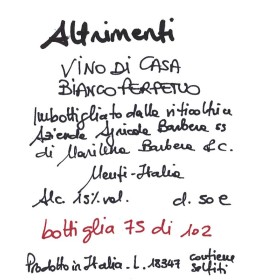 Altrimenti
VINO DI CASA
BIANCO PERPETUO
Imbottigliato dalla viticoltrice
Azienda Agricola Barbera ss
di Marilena Barbera & C.
Menfi-Italia
Alc. 15% vol. d. 50 e
bottiglia 75 di 102
Prodotto in Italia. L. 18347 contiene
solfiti